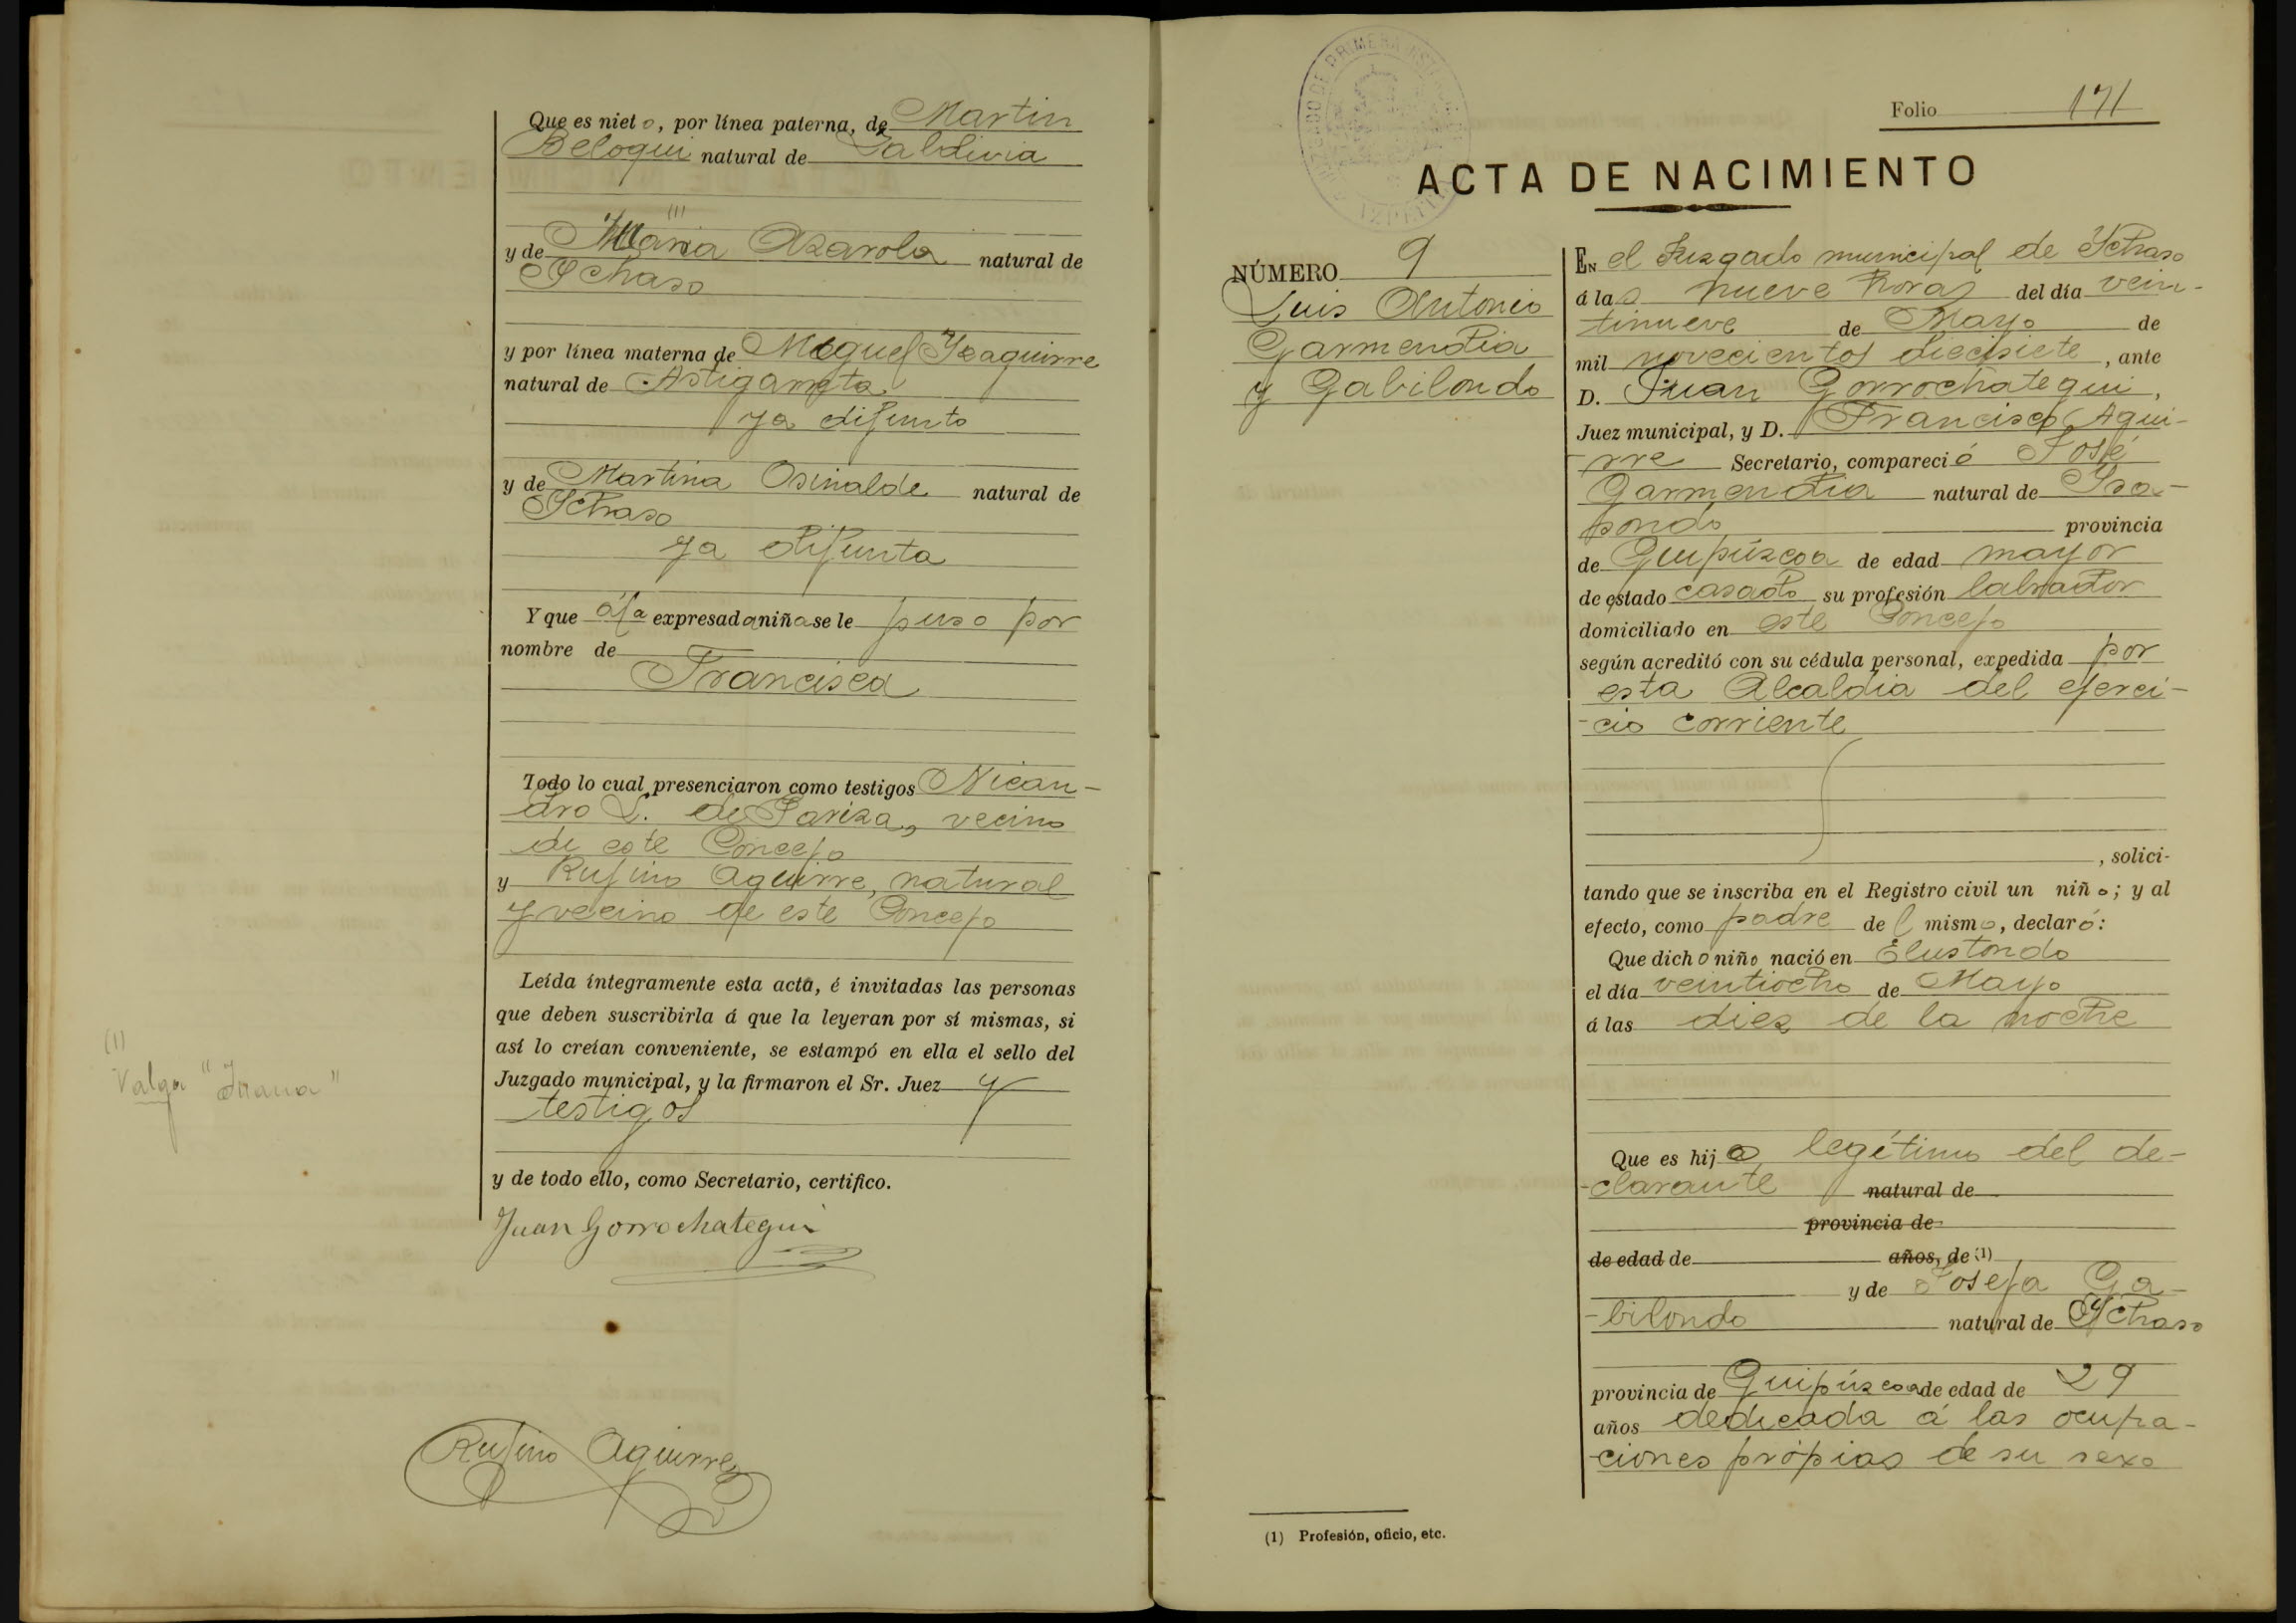 Que es nieto, por línea paterna, de Martin
Beloqui natural de Zaldivia
(1)
y de Maria Azarola natural de
Ychaso
y por línea materna de Miguel Yzaguirre
natural de Astigarreta
ya difunto
y de Martina Osinalde natural de
Ychaso
ya difunta
Y que á la expresada niña se le puso por
nombre de
Francisca
Todo lo cual presenciaron como testigos Nican-
dro L. de Lariza, vecino
de este Concejo
y Rufino Aguirre, natural
y vecino de este Concejo
Leída íntegramente esta acta, é invitadas las personas
que deben suscribirla á que la leyeran por sí mismas, si
así lo creían conveniente, se estampó en ella el sello del
Juzgado municipal, y la firmaron el Sr. Juez y
testigos
y de todo ello, como Secretario, certifico.
Juan Gorrochategui
Rufino Aguirre
(1)
Valga
Folio 171
ACTA DE NACIMIENTO
NÚMERO 9
Luis Antonio
Garmendia
y Gabilondo
EN el Juzgado municipal de Ychaso
á las nueve horas del día vein-
tinueve de Mayo de
mil novecientos diecisiete, ante
D. Juan Gorrochategui,
Juez municipal, y D. Francisco Agui-
-rre Secretario, compareció José
Garmendia natural de Isa-
sondo provincia
de Guipúzcoa de edad mayor
de estado casado su profesión labrador
domiciliado en este Concejo
según acreditó con su cédula personal, expedida por
esta Alcaldia del ejerci-
-cio corriente
, solici-
tando que se inscriba en el Registro civil un niño; y al
efecto, como padre del mismo, declaró:
Que dicho niño nació en Elustondo
el día veintiocho de Mayo
á las diez de la noche
Que es hijo legítimo del de-
-clarante natural de
provincia de
de edad de años, de (1)
y de Josefa Ga-
-bilondo natural de Ychaso
provincia de Guipúzcoa de edad de 29
años dedicada á las ocupa-
-ciones própias de su sexo
(1) Profesión, oficio, etc.